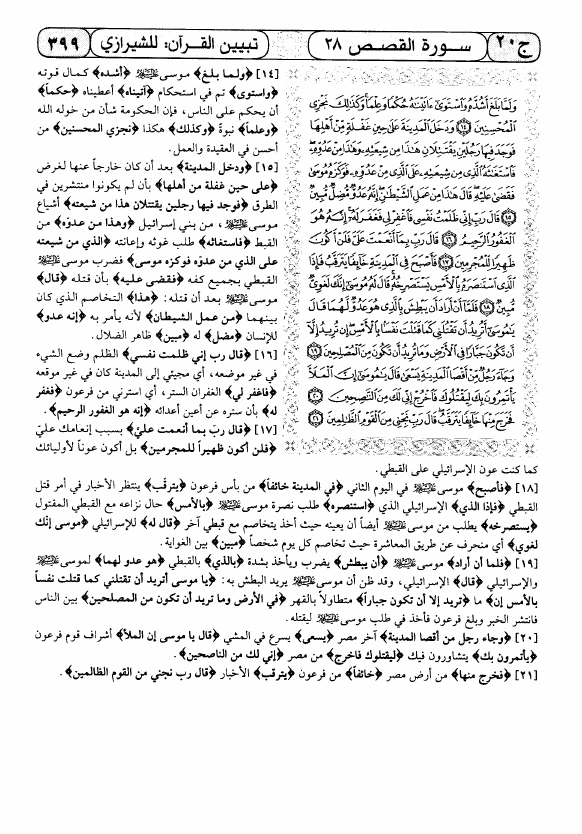 ج٢٠
سورة القصص ٢٨
تبيين القرآن: للشيرازي
٣٩٩
وَلَمَّا بَلَغَ أَشُدَّهُ وَاسْتَوَىٰ ءَاتَيْنَاهُ حُكْمًا وَعِلْمًا وَكَذَٰلِكَ نَجْزِي
الْمُحْسِنِينَ ١٤ وَدَخَلَ الْمَدِينَةَ عَلَىٰ حِينِ غَفْلَةٍ مِنْ أَهْلِهَا
فَوَجَدَ فِيهَا رَجُلَيْنِ يَقْتَتِلَانِ هَٰذَا مِنْ شِيعَتِهِ وَهَٰذَا مِنْ عَدُوِّهِ
فَاسْتَغَاثَهُ الَّذِي مِنْ شِيعَتِهِ عَلَى الَّذِي مِنْ عَدُوِّهِ فَوَكَزَهُ مُوسَىٰ
فَقَضَىٰ عَلَيْهِ قَالَ هَٰذَا مِنْ عَمَلِ الشَّيْطَانِ إِنَّهُ عَدُوٌّ مُضِلٌّ مُبِينٌ
١٥ قَالَ رَبِّ إِنِّي ظَلَمْتُ نَفْسِي فَاغْفِرْ لِي فَغَفَرَ لَهُ إِنَّهُ هُوَ
الْغَفُورُ الرَّحِيمُ ١٦ قَالَ رَبِّ بِمَا أَنْعَمْتَ عَلَيَّ فَلَنْ أَكُونَ
ظَهِيرًا لِلْمُجْرِمِينَ ١٧ فَأَصْبَحَ فِي الْمَدِينَةِ خَائِفًا يَتَرَقَّبُ فَإِذَا
الَّذِي اسْتَنْصَرَهُ بِالْأَمْسِ يَسْتَصْرِخُهُ قَالَ لَهُ مُوسَىٰ إِنَّكَ لَغَوِيٌّ
مُبِينٌ ١٨ فَلَمَّا أَنْ أَرَادَ أَنْ يَبْطِشَ بِالَّذِي هُوَ عَدُوٌّ لَهُمَا قَالَ
يَا مُوسَىٰ أَتُرِيدُ أَنْ تَقْتُلَنِي كَمَا قَتَلْتَ نَفْسًا بِالْأَمْسِ إِنْ تُرِيدُ إِلَّا
أَنْ تَكُونَ جَبَّارًا فِي الْأَرْضِ وَمَا تُرِيدُ أَنْ تَكُونَ مِنَ الْمُصْلِحِينَ ١٩
وَجَاءَ رَجُلٌ مِنْ أَقْصَا الْمَدِينَةِ يَسْعَىٰ قَالَ يَا مُوسَىٰ إِنَّ الْمَلَأَ
يَأْتَمِرُونَ بِكَ لِيَقْتُلُوكَ فَاخْرُجْ إِنِّي لَكَ مِنَ النَّاصِحِينَ ٢٠
فَخَرَجَ مِنْهَا خَائِفًا يَتَرَقَّبُ قَالَ رَبِّ نَجِّنِي مِنَ الْقَوْمِ الظَّالِمِينَ ٢١
[١٤] ﴿ولما بلغ﴾ موسى عليه السلام ﴿أشده﴾ كمال قوته
﴿واستوى﴾ تم في استحكام ﴿آتيناه﴾ أعطيناه ﴿حكماً﴾
أن يحكم على الناس، فإن الحكومة شأن من خوله الله
﴿وعلماً﴾ نبوة ﴿وكذلك﴾ هكذا ﴿نجزي المحسنين﴾ من
أحسن في العقيدة والعمل.
[١٥] ﴿ودخل المدينة﴾ بعد أن كان خارجاً عنها لغرض
﴿على حين غفلة من أهلها﴾ بأن لم يكونوا منتشرين في
الطرق ﴿فوجد فيها رجلين يقتتلان هذا من شيعته﴾ أشياع
موسى عليه السلام، من بني إسرائيل ﴿وهذا من عدوّه﴾ من
القبط ﴿فاستغاثه﴾ طلب غوثه وإعانته ﴿الذي من شيعته
على الذي من عدوّه فوكزه موسى﴾ فضرب موسى عليه السلام
القبطي بجميع كفه ﴿فقضى عليه﴾ بأن قتله ﴿قال﴾
موسى عليه السلام بعد أن قتله: ﴿هذا﴾ التخاصم الذي كان
بينهما ﴿من عمل الشيطان﴾ لأنه يأمر به ﴿إنه عدو﴾
للإنسان ﴿مضل﴾ له ﴿مبين﴾ ظاهر الضلال.
[١٦] ﴿قال رب إني ظلمت نفسي﴾ الظلم وضع الشيء
في غير موضعه، أي مجيئي إلى المدينة كان في غير موقعه
﴿فاغفر لي﴾ الغفران الستر، أي استرني من فرعون ﴿فغفر
له﴾ بأن ستره عن أعين أعدائه ﴿إنه هو الغفور الرحيم﴾.
[١٧] ﴿قال ربّ بما أنعمت عليّ﴾ بسبب إنعامك عليّ
﴿فلن أكون ظهيراً للمجرمين﴾ بل أكون عوناً لأوليائك
كما كنت عون الإسرائيلي على القبطي.
[١٨] ﴿فأصبح﴾ موسى عليه السلام في اليوم الثاني ﴿في المدينة خائفاً﴾ من بأس فرعون ﴿يترقّب﴾ ينتظر الأخبار في أمر قتل
القبطي ﴿فإذا الذي﴾ الإسرائيلي الذي ﴿استنصره﴾ طلب نصرة موسى عليه السلام ﴿بالأمس﴾ حال نزاعه مع القبطي المقتول
﴿يستصرخه﴾ يطلب من موسى عليه السلام أيضاً أن يعينه حيث أخذ يتخاصم مع قبطي آخر ﴿قال له﴾ للإسرائيلي ﴿موسى إنّك
لغوي﴾ أي منحرف عن طريق المعاشرة حيث تخاصم كل يوم شخصاً ﴿مبين﴾ بين الغواية.
[١٩] ﴿فلما أن أراد﴾ موسى عليه السلام ﴿أن يبطش﴾ يضرب ويأخذ بشدة ﴿بالذي﴾ بالقبطي ﴿هو عدو لهما﴾ لموسى عليه السلام
والإسرائيلي ﴿قال﴾ الإسرائيلي، وقد ظن أن موسى عليه السلام يريد البطش به: ﴿يا موسى أتريد أن تقتلني كما قتلت نفساً
بالأمس إن﴾ ما ﴿تريد إلا أن تكون جباراً﴾ متطاولاً بالقهر ﴿في الأرض وما تريد أن تكون من المصلحين﴾ بين الناس
فانتشر الخبر وبلغ فرعون فأخذ في طلب موسى عليه السلام ليقتله.
[٢٠] ﴿وجاء رجل من أقصا المدينة﴾ آخر مصر ﴿يسعى﴾ يسرع في المشي ﴿قال يا موسى إن الملأ﴾ أشراف قوم فرعون
﴿يأتمرون بك﴾ يتشاورون فيك ﴿ليقتلوك فاخرج﴾ من مصر ﴿إني لك من الناصحين﴾.
[٢١] ﴿فخرج منها﴾ من أرض مصر ﴿خائفاً﴾ من فرعون ﴿يترقب﴾ الأخبار ﴿قال رب نجني من القوم الظالمين﴾.